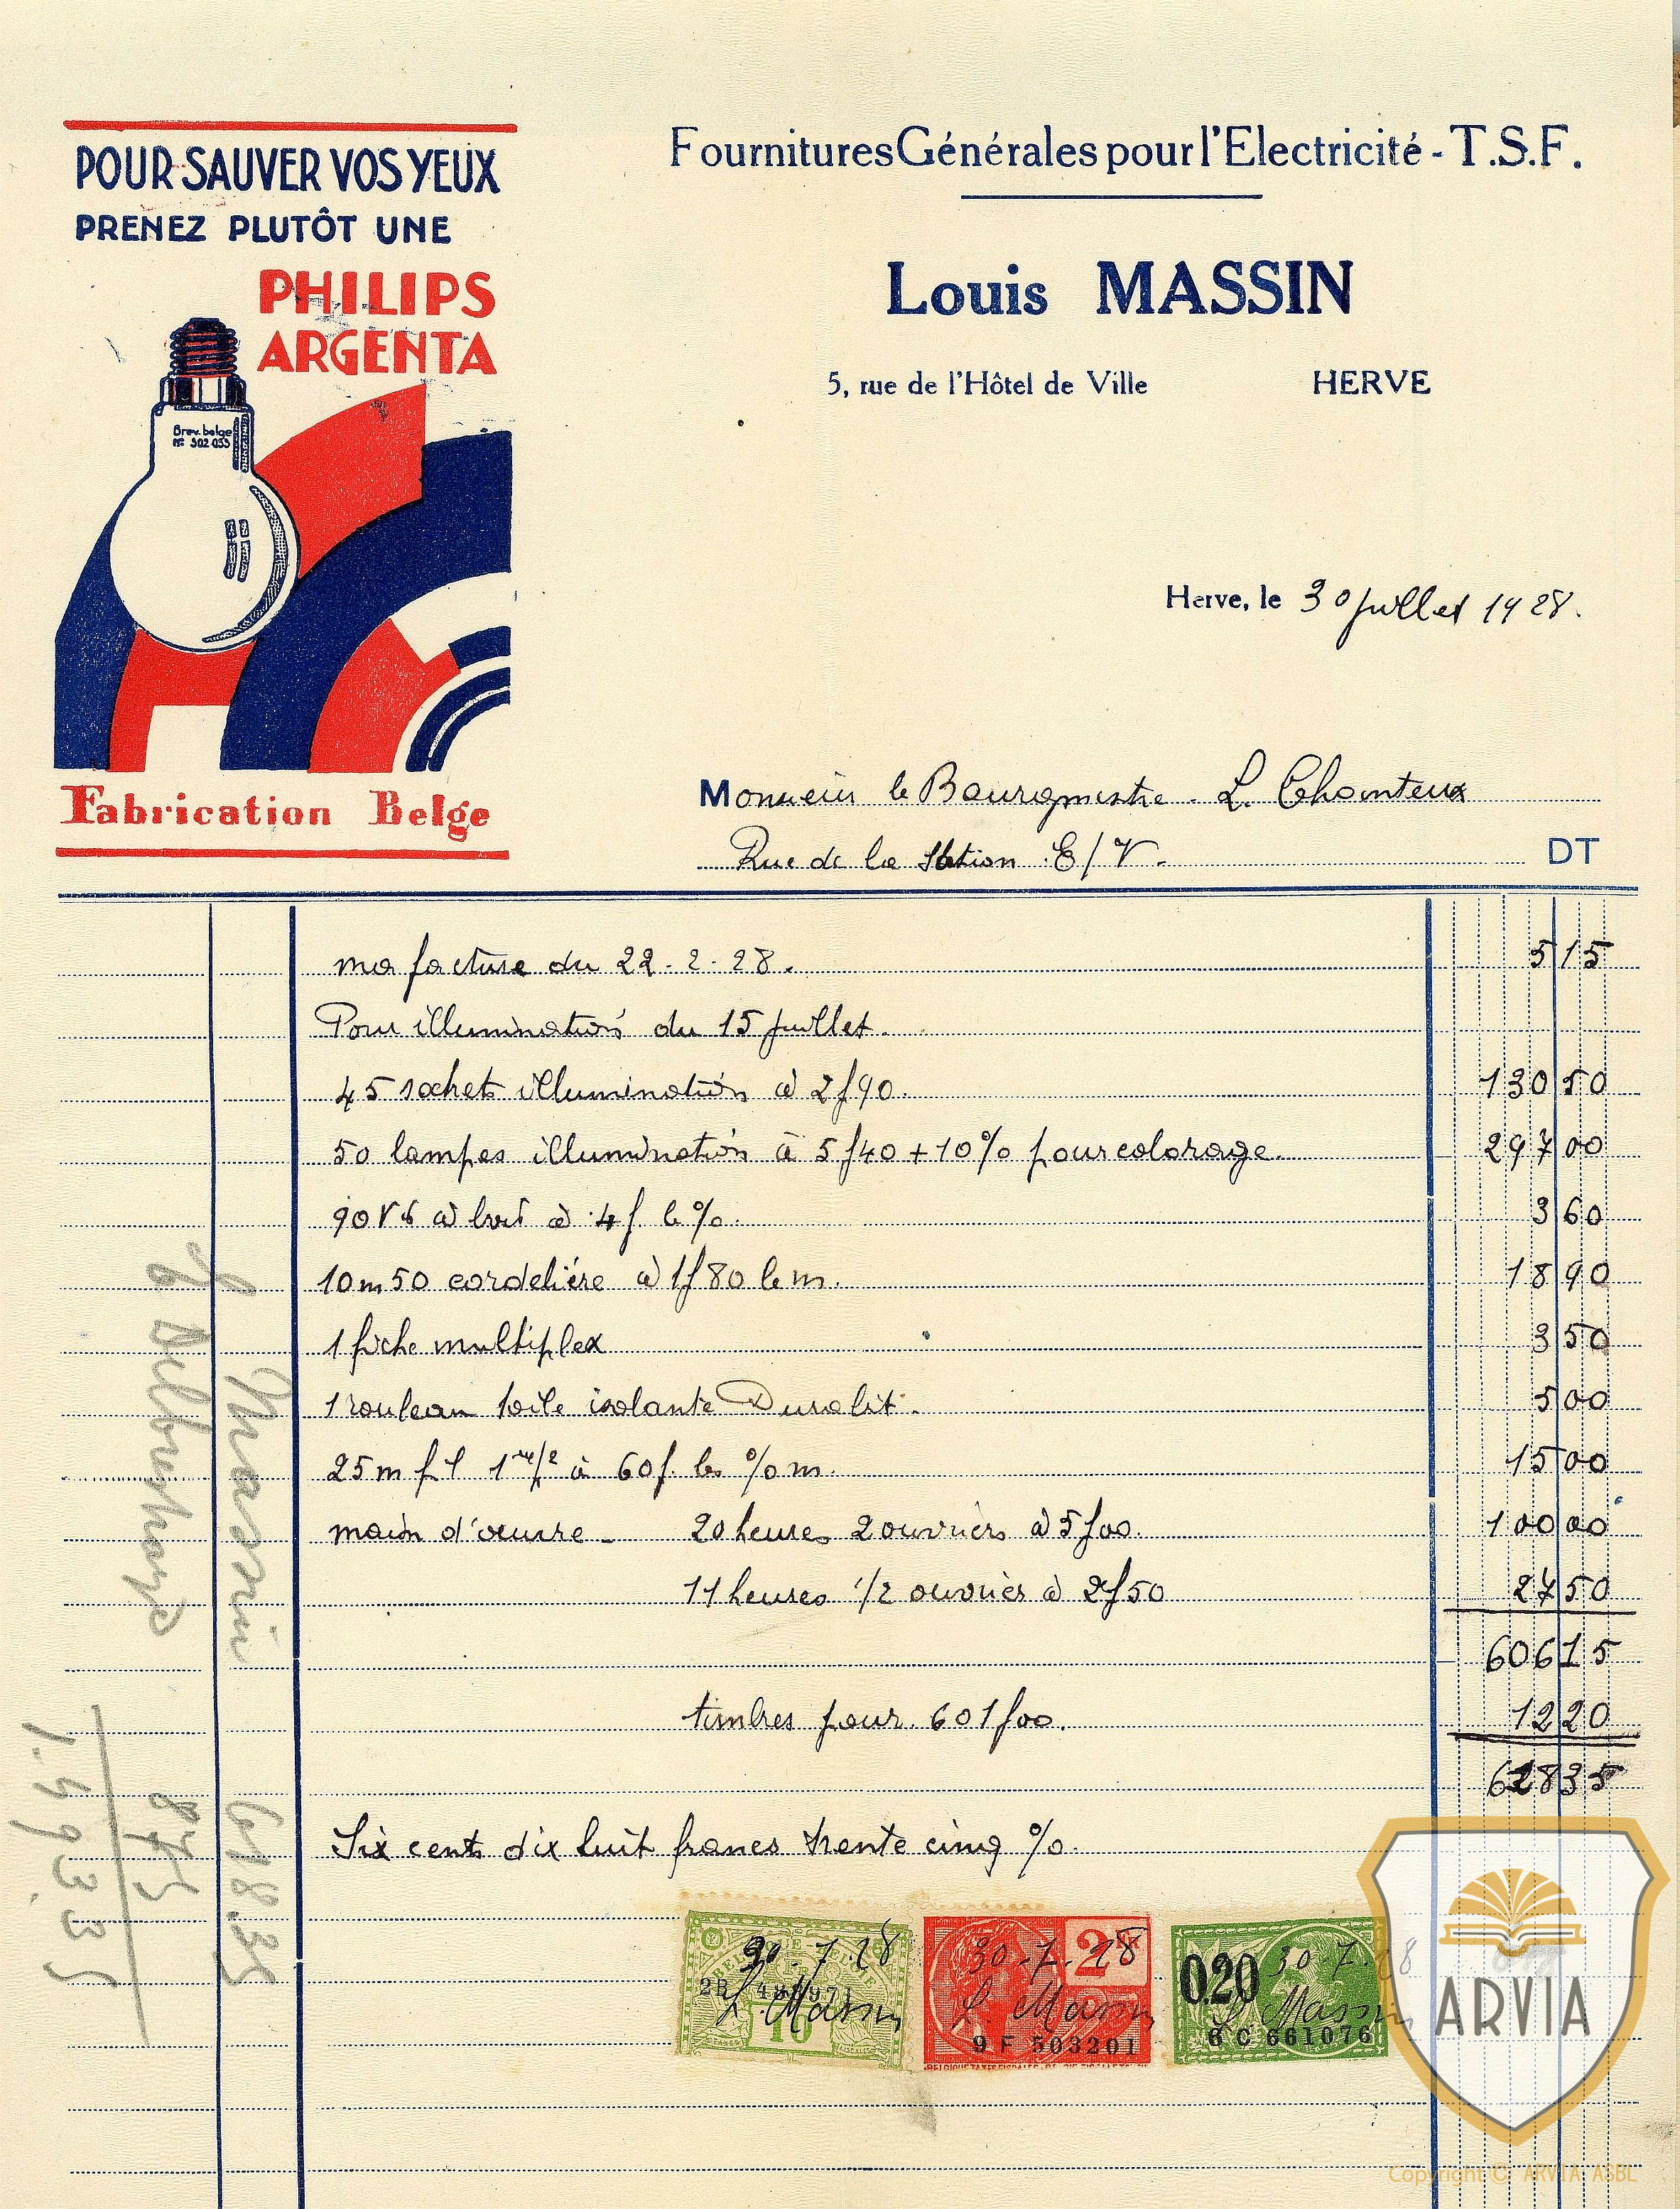 POUR SAUVER VOS YEUX
PRENEZ PLUTÔT UNE
PHILIPS
ARGENTA
Brev. belge
N° 302 033
Fabrication Belge
Fournitures Générales pour l'Electricité - T.S.F.
Louis MASSIN
5, rue de l'Hôtel de Ville HERVE
Herve, le 30 juillet 1928.
Monsieur le Bourgmestre - L. Chainteux
Rue de la Station E/V. DT
ma facture du 22-2-28. 5 15
Pour illumination du 15 juillet.
45 sachets illumination à 2f90. 130 50
50 lampes illumination à 5f40 + 10% pour colorage. 297 00
90 Vs à bois à 4f. le %. 3 60
10m50 cordelière à 1f80 le m. 18 90
1 fiche multiplex 3 50
1 rouleau toile isolante Duralit. 5 00
25m fil 1 m/2 à 60f. les % m. 15 00
main d'œuvre - 20 heures 2 ouvriers à 5f00. 100 00
11 heures 1/2 ouvrier à 2f50 27 50
606 15
timbres pour 601f00. 12 20
618 35
Six cent dix huit francs trente cinq %.
Massin 618.35
875
1.493.35
30-7-28
L. Massin
10
30-7-28
2
L. Massin
9 F 503201
0.20
30-7-28
L. Massin
6 C 661076
ARVIA
Copyright © ARVIA ASBL